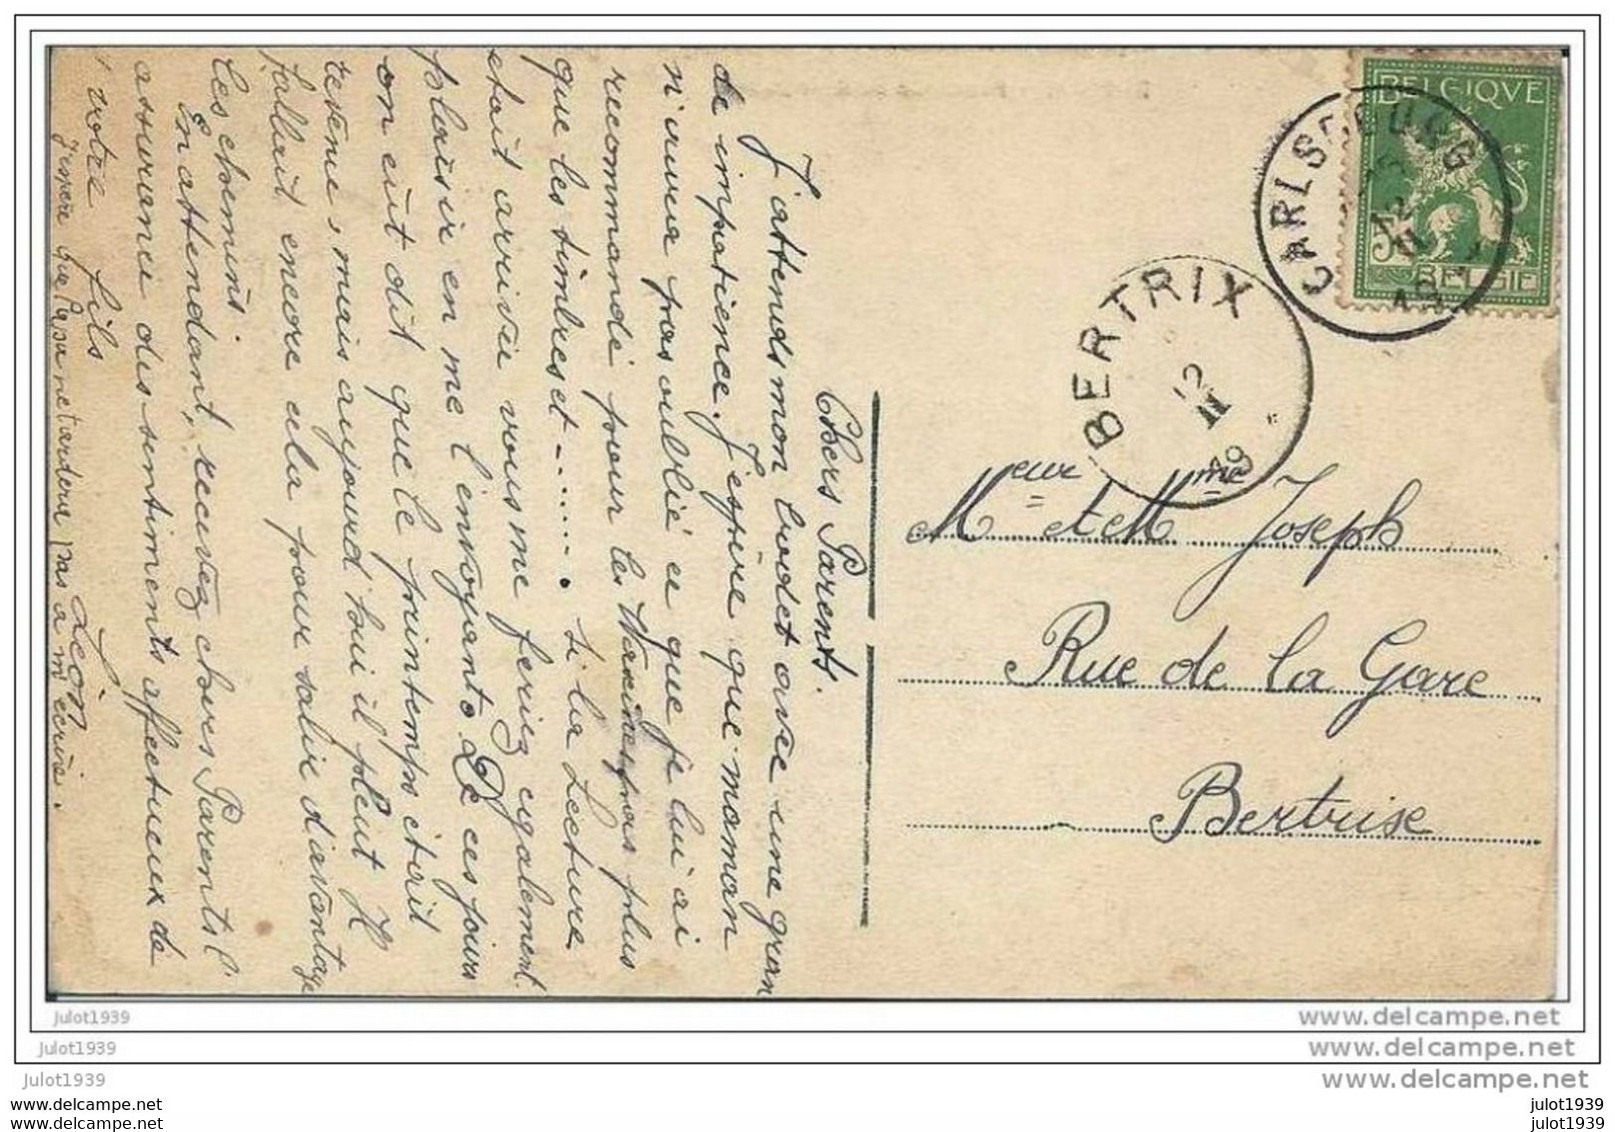 Chers Parents.
J'attends mon budet avec une gran
de impatience. J'espère que maman
n'aura pas oublié ce que je lui ai
recommandé pour les plus
que les timbres et ------- . Si la Lecture
était arrivée vous me feriez également
plaisir en me l'envoyant. De ces jours
on eût dit que le printemps était
revenu; mais aujourd'hui il pleut Il
fallait encore cela pour salir d'avantage
les chemins
En attendant, recevez, chers Parents l'
assurance des sentiments affectueux de
votre fils
Léon
J'espère que pas à
m'écrire.
BELGIQUE
5 5
BELGIË
CARLSBOURG
12
II
13
BERTRIX
12
II
Meur et Mme Joseph
Rue de la Gare
Bertrise
julot1939
julot1939
julot1939
www.delcampe.net
www.delcampe.net
www.delcampe.net
www.delcampe.net
www.delcampe.net
julot1939
julot1939